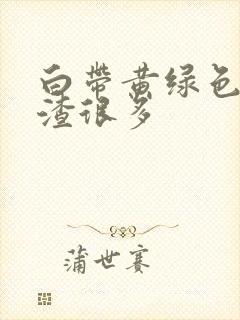 白带黄绿色
渣很多
蒲世赛